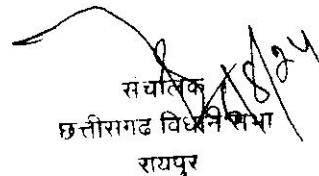 संचालक
छत्तीसगढ विधान सभा
रायपुर